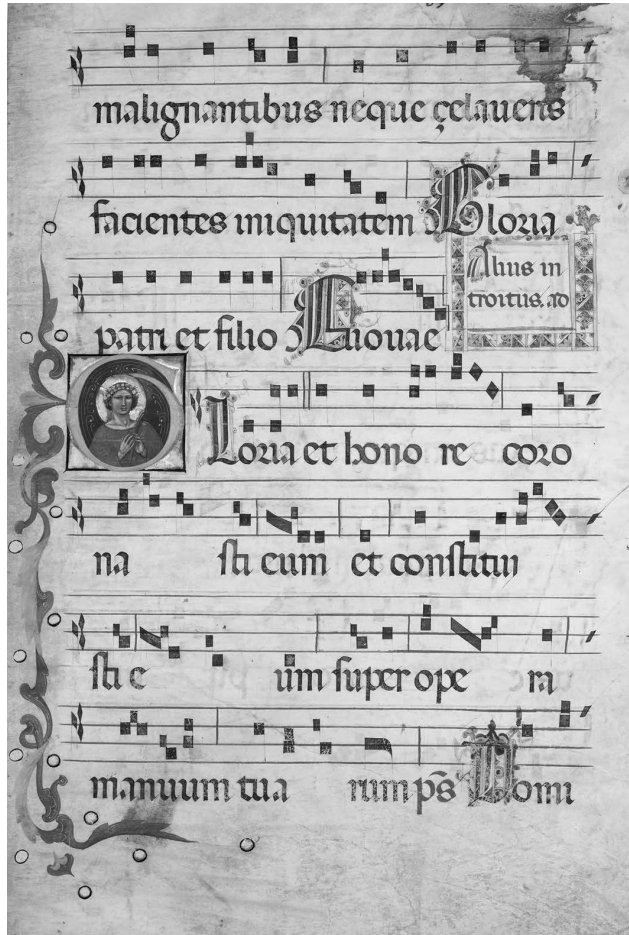 malignantibus neque çelaueris
facientes iniquitatem Gloria
patri et filio Euouae
Alius in
troitus. ad
Gloria et hono re coro
na sti eum et constitui
sti e um super ope ra
manuum tua rum ps̄ Domi